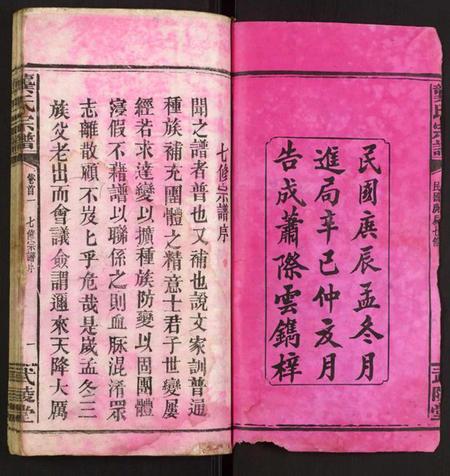 民國庚辰孟冬月
進局辛巳仲夾月
告成蕭際雲鐫梓
龔氏宗譜
武陵堂
七修宗譜序
聞之譜者普也又補也說文家訓普通
種族補充團體之精意士君子世變屢
經若求達變以擴種族防變以固團體
寖假不藉譜以聯係之則血脈混淆眾
志離散顧不岌上乎危哉是歲孟冬三
族父老出而會議僉謂邇來天降大厲
龔氏宗譜
卷首一
七修宗譜序
一
武陵堂